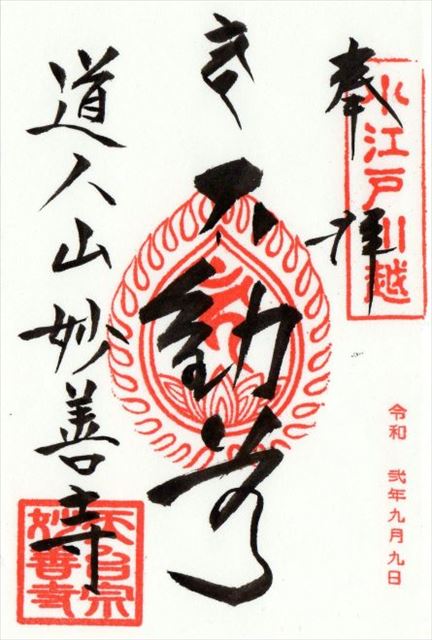 奉拝
小江戸川越
令和 弐年九月九日
不動尊
道人山妙善寺
天台宗
妙善寺